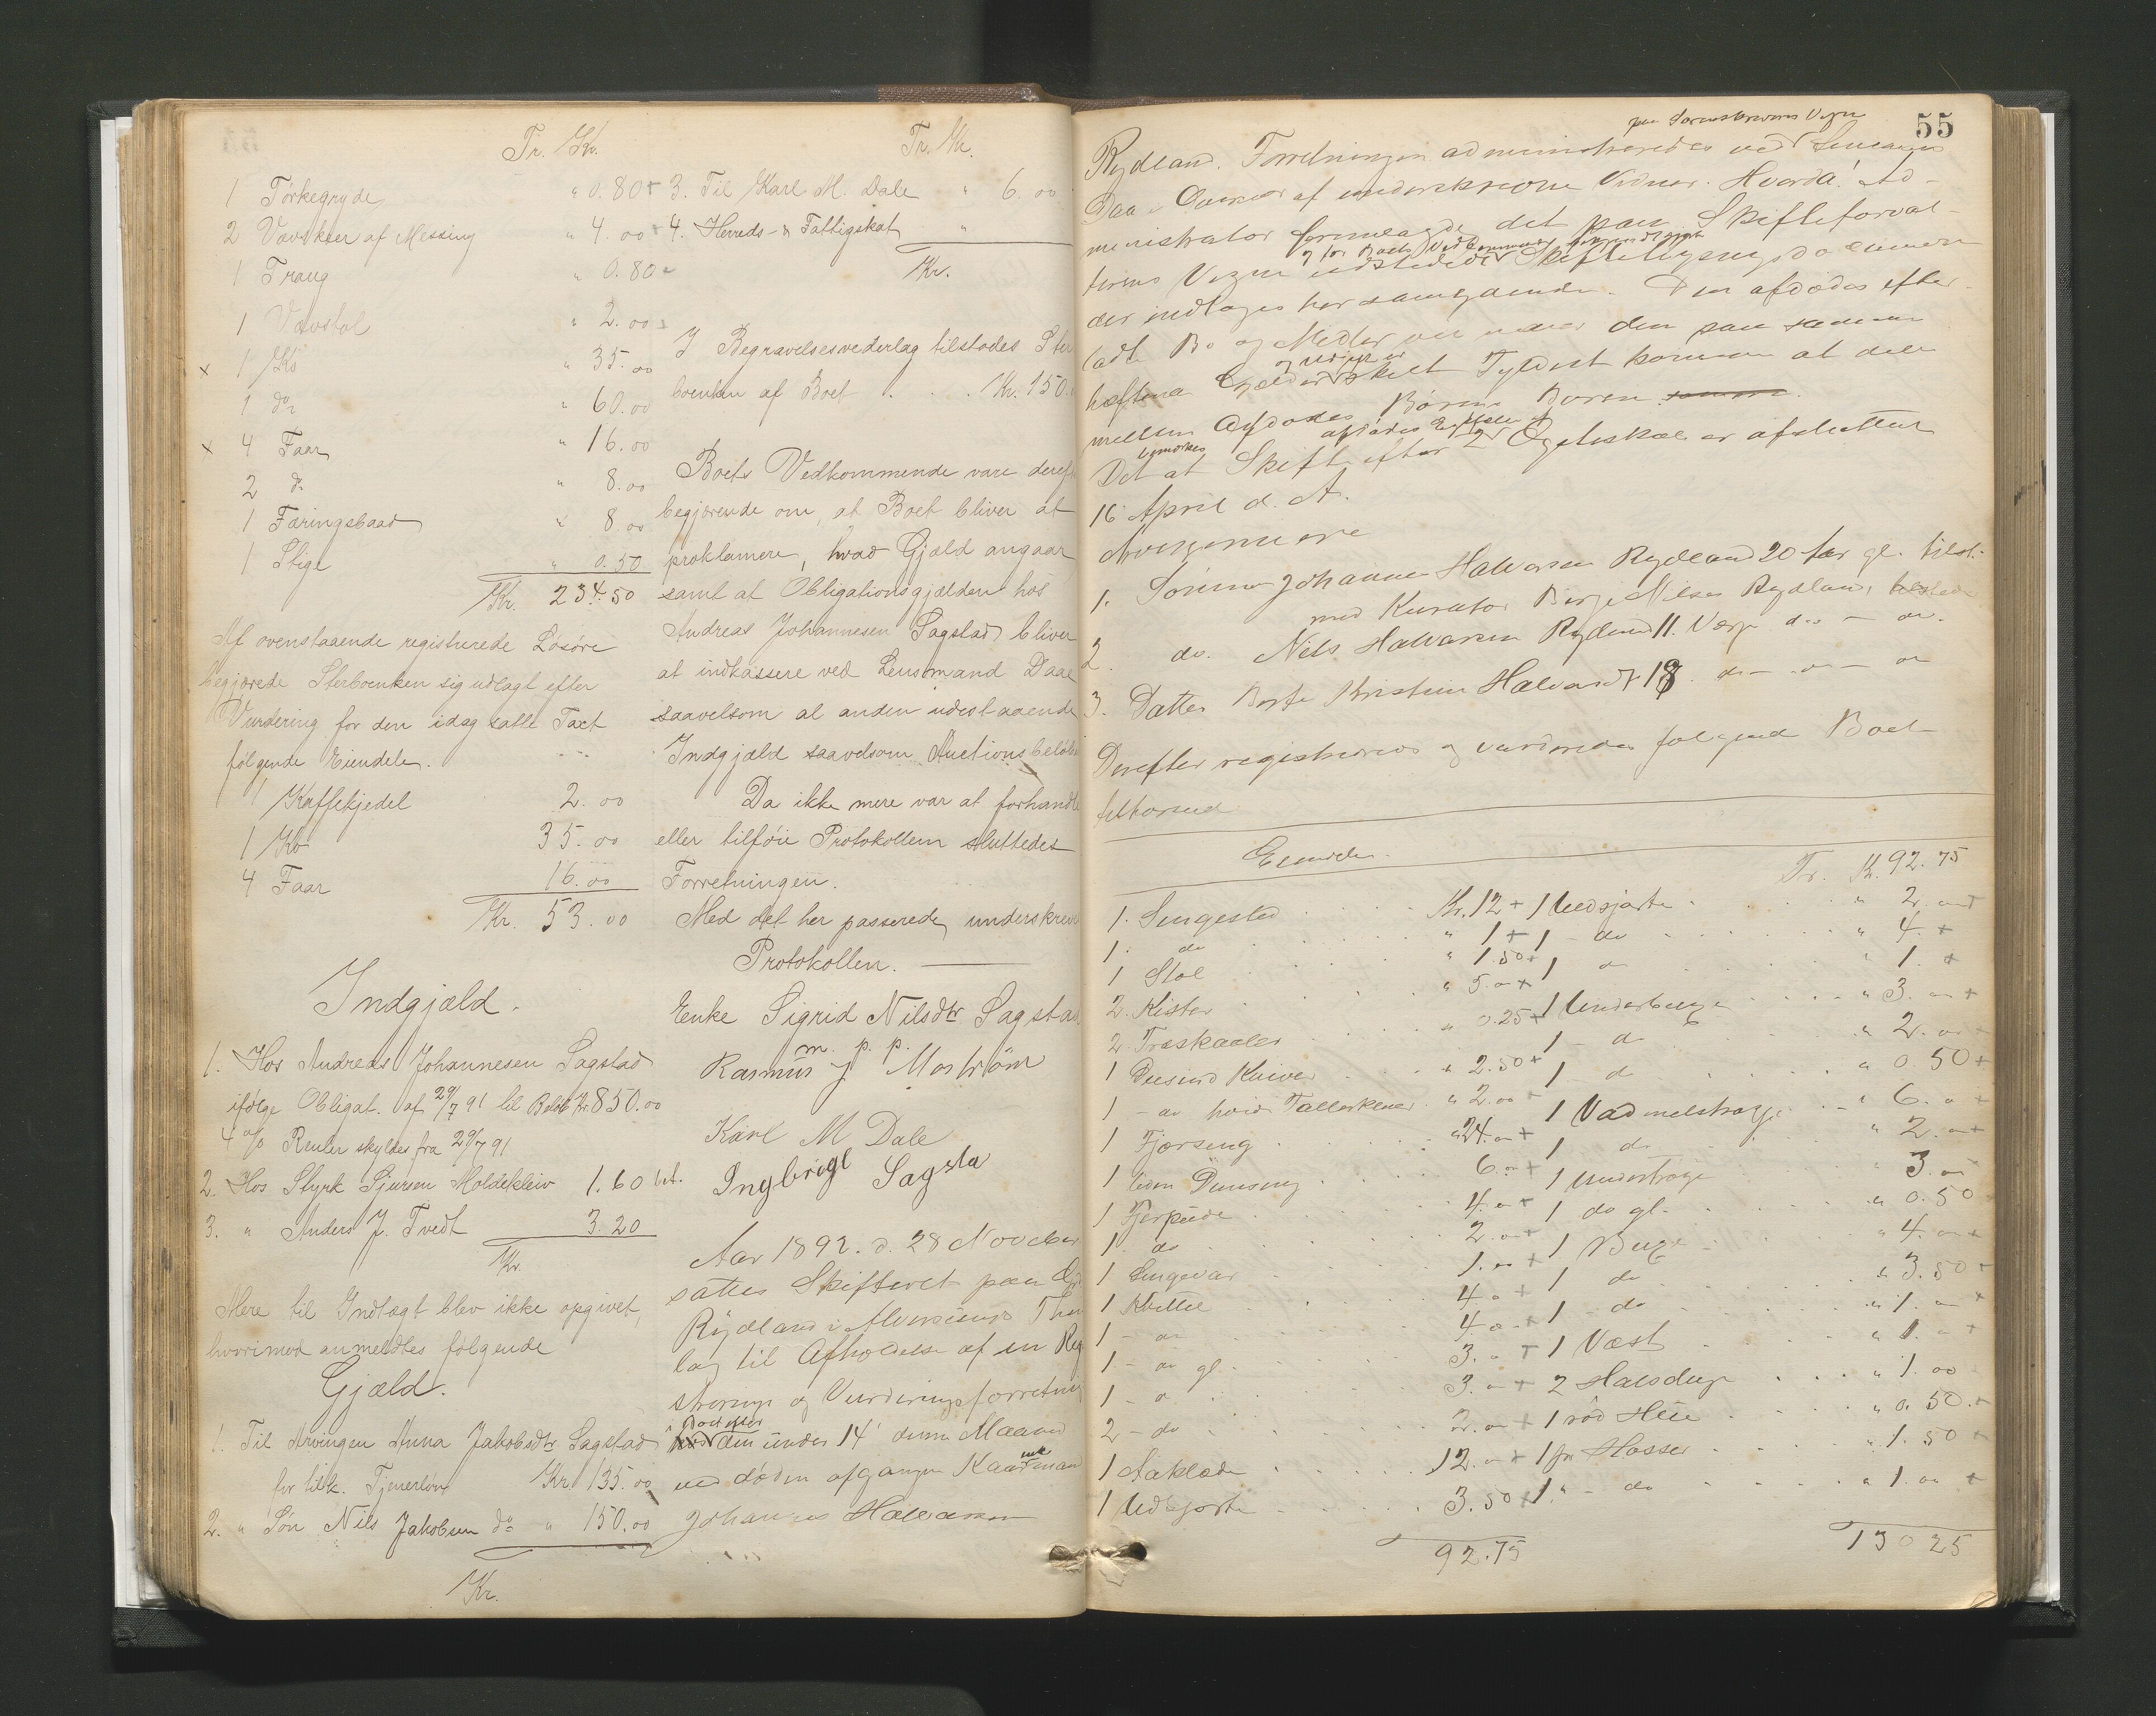 Tr. Kr.
1 Tørkegryde " 0.80 +
2 Vævskeer af Messing " 4.00 +
1 Traug " 0.80 "
1 Vævstol " 2.00 x
x 1 Ko " 35.00
1 do " 60.00
x 4 Faar " 16.00
2 do " 8.00
1 Færingsbaad " 8.00
1 Stige " 0.50
Kr. 234.50
Af ovenstaaende registrerede Løsøre
begjærede Sterboenken sig udlagt efter
Vurdering for den idag satte Taxt
følgende Eiendele.
1 Kaffekjedel 2.00
1 Ko 35.00
4 Faar 16.00
Kr. 53.00
Indgjæld.
1. Hos Andreas Johannesen Sagstad
ifølge Obligat. af 29/7 91 til Beløb Kr. 850.00
4 o/o Renter skyldes fra 29/7 91
2. Hos Styrk Sjursen Moldekleiv 1.60 bet.
3. " Anders J. Tvedt 3.20
Kr.
Mere til Indtægt blev ikke opgivet,
hvorimod anmeldtes følgende
Gjæld.
1. Til Arvingen Anna Jakobsdtr Sagstad
for tilk. Tjenerløn Kr. 135.00
2. " Søn Nils Jakobsen do " 150.00
Kr.
Tr. Kr.
3. Til Karl M. Dale " 6.00
4. Herreds- & Fattigskat "
Kr.
I Begravelsesvederlag tilstodes Ster
boenken af Boet . . . Kr. 150.
Boets Vedkommende vare deref
begjærende om, at Boet bliver at
proklamere, hvad Gjæld angaar
samt at Obligationsgjælden hos
Andreas Johannesen Sagstad bliver
at indkassere ved Lensmand Daae
saavelsom al anden udestaaende
Indgjæld saavelsom Auctionsbeløbe
Da ikke mere var at forhandle
eller tilføie Protokollen sluttedes
Forretningen.
Med det her passerede underskreve
Protokollen.
Enke Sigrid Nilsdtr Sagstad
m. p. p.
Rasmus J Mostrøm
Karl M Dale
Ingbrigt Sagsta
Aar 1892. d. 28 November
sattes Skifteret paa
Rydland i Alversunds Thin
lag til Afholdelse af en Reg
strerings og Vurderingsforretning
i Boet efter
den under 14 denne Maaned
ved døden afgangen Kaarmand
Johannes Halvarsen
55
paa Sorenskriverens Vegne
Rydland. Forretningen administreredes ved Lensmand
Daae i Overvær af underskrevne Vidner. Hvorda! Ad-
ministrator fremlagde det paa Skifteforval-
terens Vegne udstedede
der indtages hersammende. Den afdødes efter-
ladte Bo og Midler
Gjæld skilt Fyldest komme at dele
mellem Afdødes Børn
bemærkes
Det at Skifte efter afdødes Egteskab er afsluttet
16 April d. A.
Arvingerne ere
1. Sønnen Johannes Halvarsen Rydland 20 Aar gl. tilst:
med Kurator Børje Nilsen Rydland, tilstede
2. do. Nils Halvarsen Rydland 11. Værge do — do.
3. Datter Berte Kristine Halvarsdtr 18 do — do — do
Derefter registreredes og vurderedes følgende Boet
tilhørende
Eiendele.
1. Sengested . . . Kr. 12 +
1. do " 1 +
1 Stol " 1.50 +
2. Kister " 5.00 +
2 Træskaaler " 0.25 +
1 Dusind Knive " 2.50 +
1 - do hvide Tallerkener " 2.00 +
1 Fjærseng " 24.00 +
1 liden Dunseng 6.00 +
1 Fjærpude 4.00 +
1. do 2.00 +
1 Sengevar 1.00 +
1 Kvittel 4.00 +
1 - do 4.00 +
1 - do gl. 3.00 +
1 - do 3.00 +
2 - do 2.00 +
1 Aaklæde 12.00 +
1 Uldskjorte 3.50 +
92.75
Tr. Kr. 92.75
1 Uldskjorte " 2.00 +
1 - do " 4. +
1 do " 1. +
1 Underbuxe " 3.00 +
1 - do " 2.00 +
1 - do " 0.50 +
1 Vadmelstrøje " 6.00 +
1 do " 2.00 +
1 Undertrøje " 3.00
1 do gl. " 0.50
1 Buxe " 4.00 +
1 do " 3.50 +
1 - do " 1.00 +
1 Væst " 1.00 +
2 Halsduge " 1.00
1 rød Hue " 0.50 +
1 pr Hoser " 1.50 +
1 " - do " 1.00 +
130 25